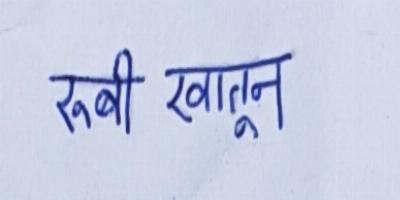 रूबी खातून